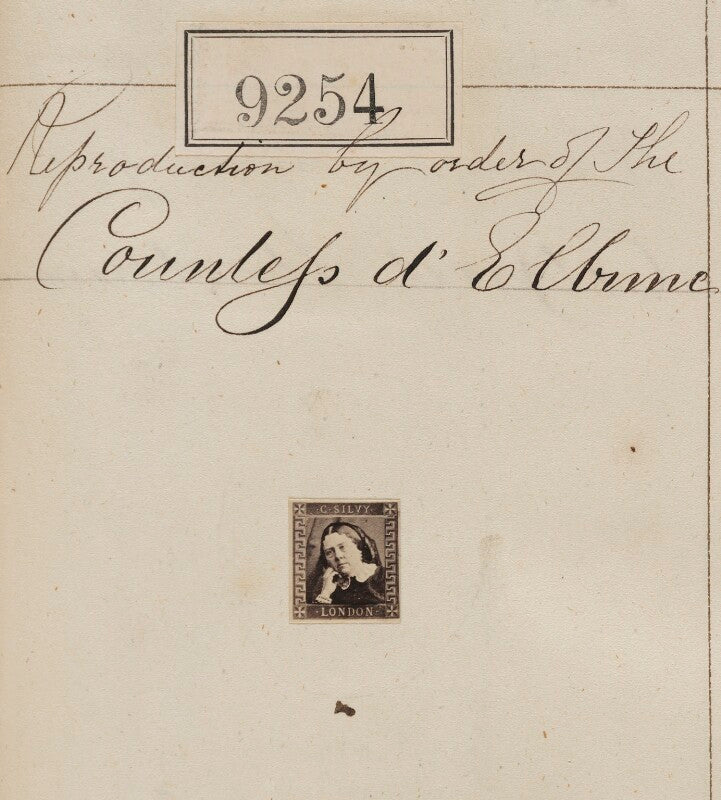 9254
Reproduction by order of The
Countess d' Elbune
· C · SILVY ·
· LONDON ·